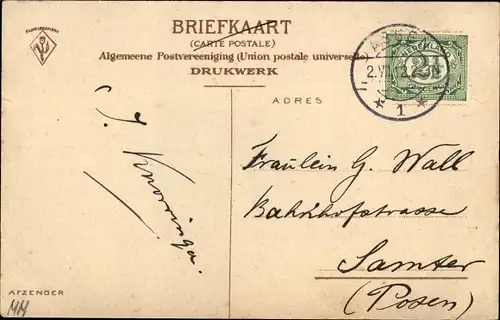 BRIEFKAART
(CARTE POSTALE)
Algemeene Postvereeniging (Union postale universelle)
DRUKWERK
ADRES
2½
1
Fräulein G. Wall
Bahnhofstrasse
Samter
(Posen)
J. Knorringa.
AFZENDER